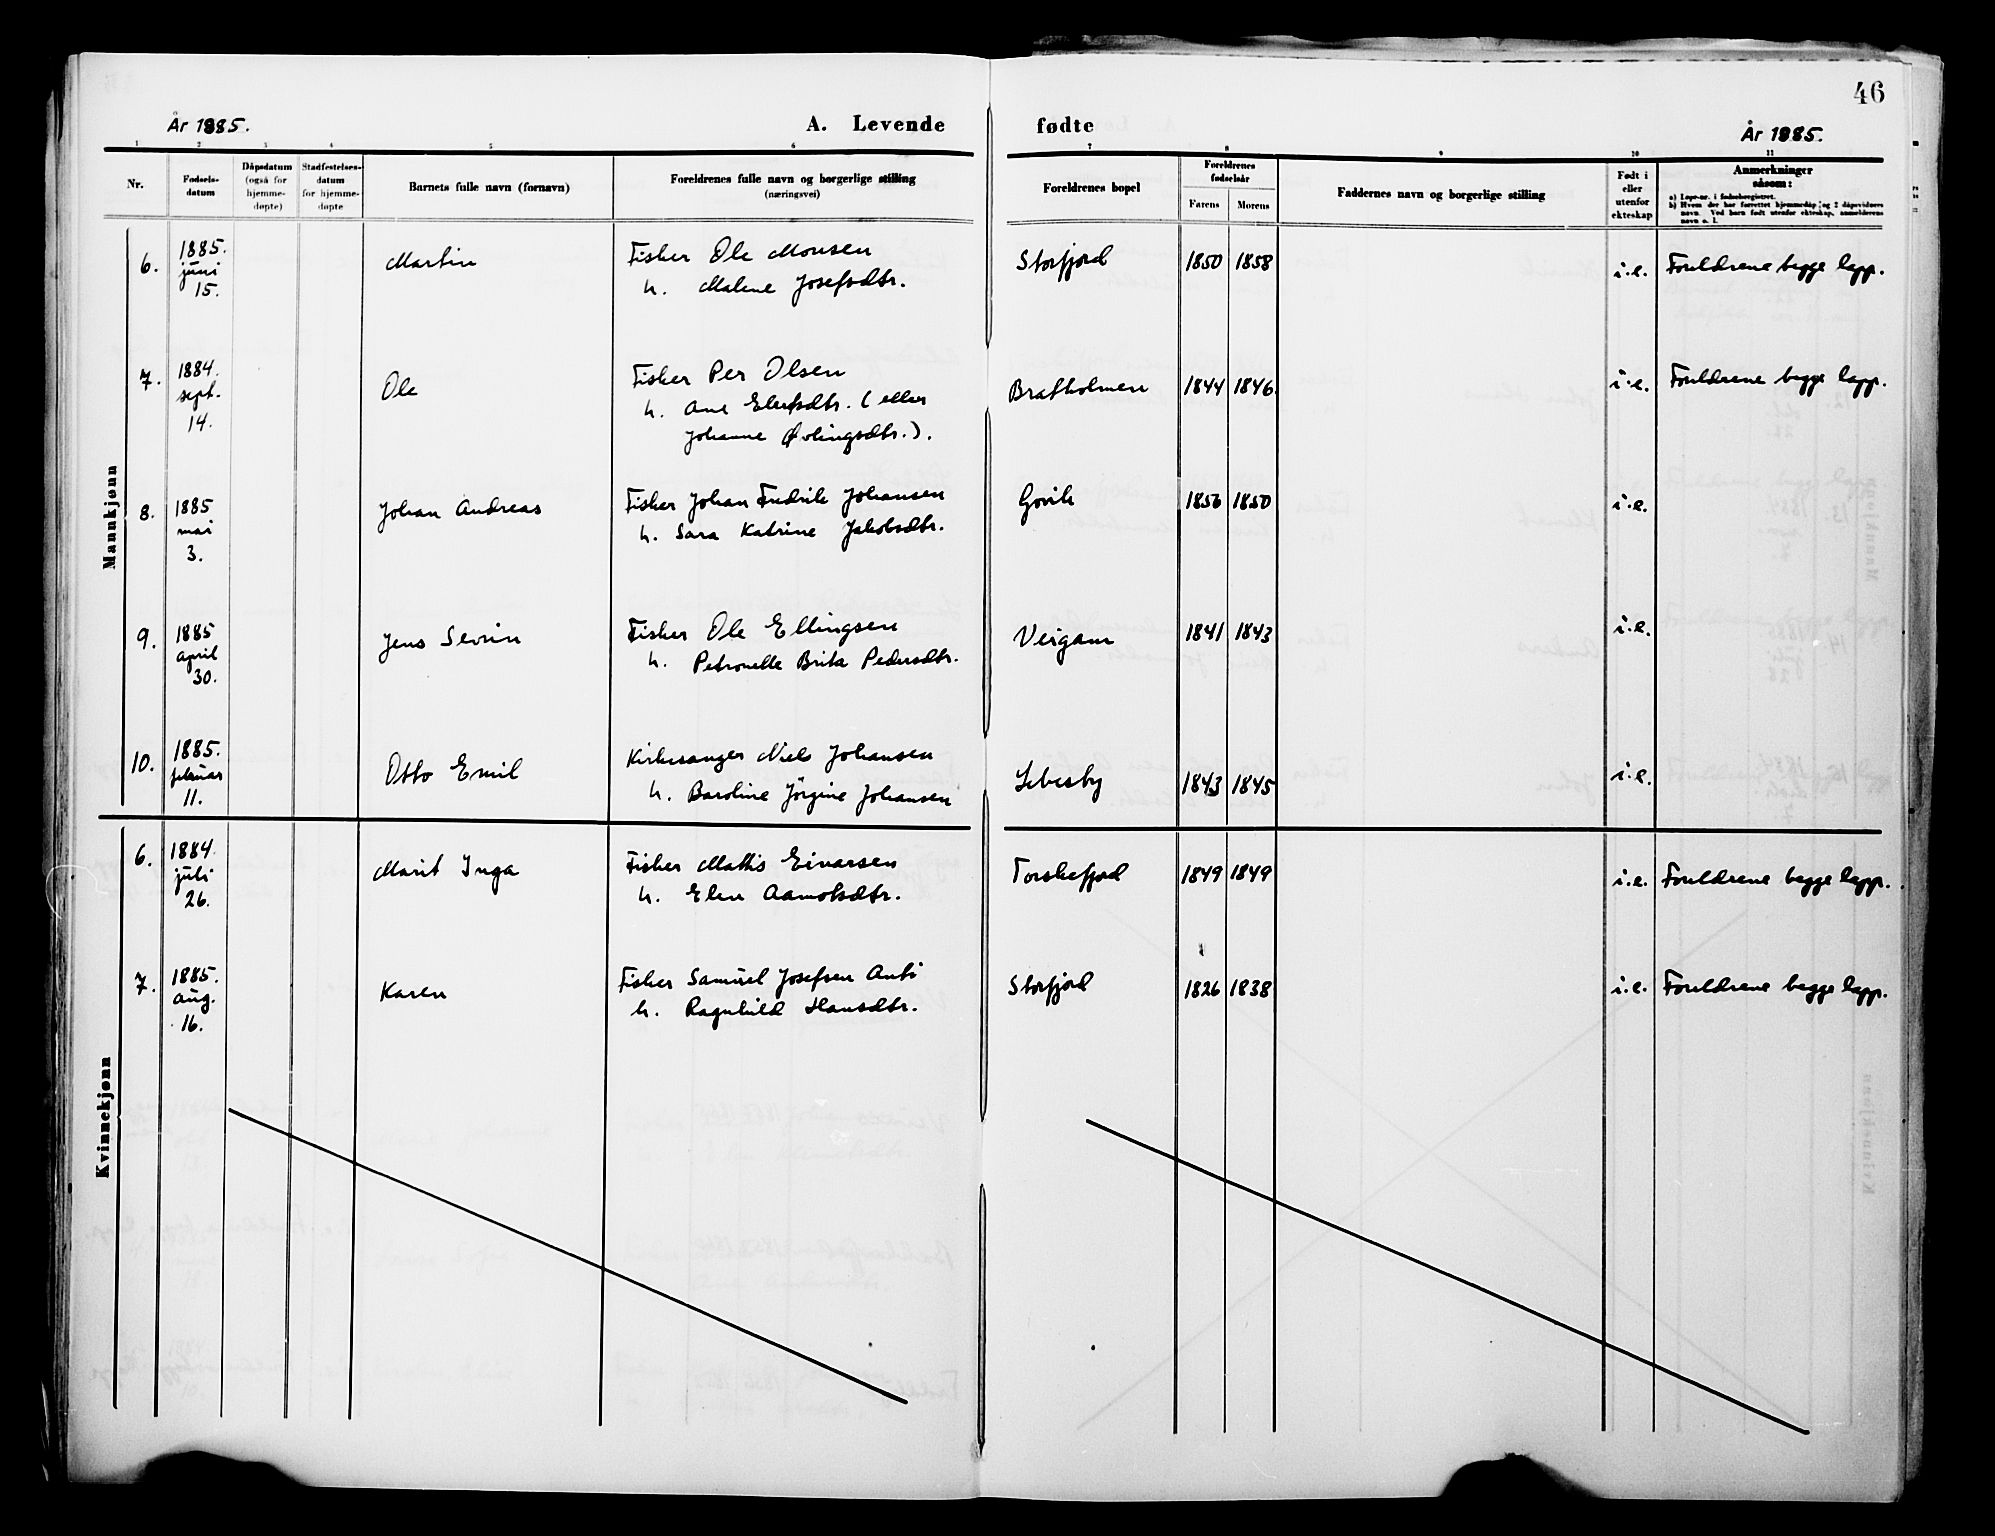 46
År 1885.
A. Levende fødte
År 1885.
1 2 3 4 5 6 7 8 9 10 11
Nr.
Fødsels-
datum
Dåpsdatum
(også for
hjemme-
døpte)
Stadfestelses-
datum
for hjemme-
døpte
Barnets fulle navn (fornavn)
Foreldrenes fulle navn og borgerlige stilling
(næringsvei)
Foreldrenes bopel
Foreldrenes
fødselsår
Farens
Morens
Faddernes navn og borgerlige stilling
Født i
eller
utenfor
ekteskap
Anmerkninger
såsom:
a) Løpe-nr. i fødselsregistret.
b) Hvem der har forrettet hjemmedåp og 2 dåpsvidners
navn. Ved barn født utenfor ekteskap, anmelderens
navn o. l.
Mannkjønn
6. 1885. juni 15. Martin
Fisker Ole Monsen
h. Malene Josefsdtr.
Storfjord 1850 1858 i.e. Foreldrene begge lapp.
7. 1884. sept. 14. Ole
Fisker Per Olsen
h. Ane Eleksdtr. (eller
Johanne Øvlingsdtr.).
Bratholmen 1844 1846. i.e. Foreldrene begge lapp.
8. 1885 mai 3. Johan Andreas
Fisker Johan Fredrik Johansen
h. Sara Katrine Jakobsdtr.
Govik 1856 1850 i.e.
9. 1885 april 30. Jens Sevrin
Fisker Ole Ellingsen
h. Petronelle Brita Pedersdtr.
Veigam 1841 1843 i.e.
10. 1885. februar 11. Otto Emil
Kirkesanger Niels Johansen
h. Baroline Jörgine Johansen
Lebesby 1843 1845 i.e.
Kvinnekjønn
6. 1884. juli 26. Marit Inga
Fisker Mathis Eivarsen
h. Elen Aamotsdtr.
Torskefjord 1849 1849 i.e. Foreldrene begge lapp.
7. 1885. aug. 16. Karen
Fisker Samuel Josefsen Anti
h. Ragnhild Hansdtr.
Storfjord 1826 1838 i.e. Foreldrene begge lapp.